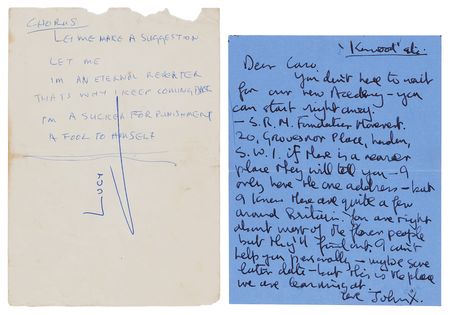 CHORUS
LET ME MAKE A SUGGESTION
LET ME
IM AN ETERNAL REPEATER
THATS WHY I KEEP COMING BACK
IM A SUCKER FOR PUNISHMENT
A FOOL TO HIMSELF
'Kenwood' etc.
Dear Caro,
You don't have to wait
for our new Academy – you
can start right away.
– S.R.M. Foundation Movement.
20, Grosvenor Place, London,
S.W.1. if there is a nearer
place they will tell you – I
only have the one address – but
I know there are quite a few
around Britain. You are right
about most of the flower people
but they'll find out. I can't
help you personally – maybe some
later date – but this is the place
we are learning at.
love John X.